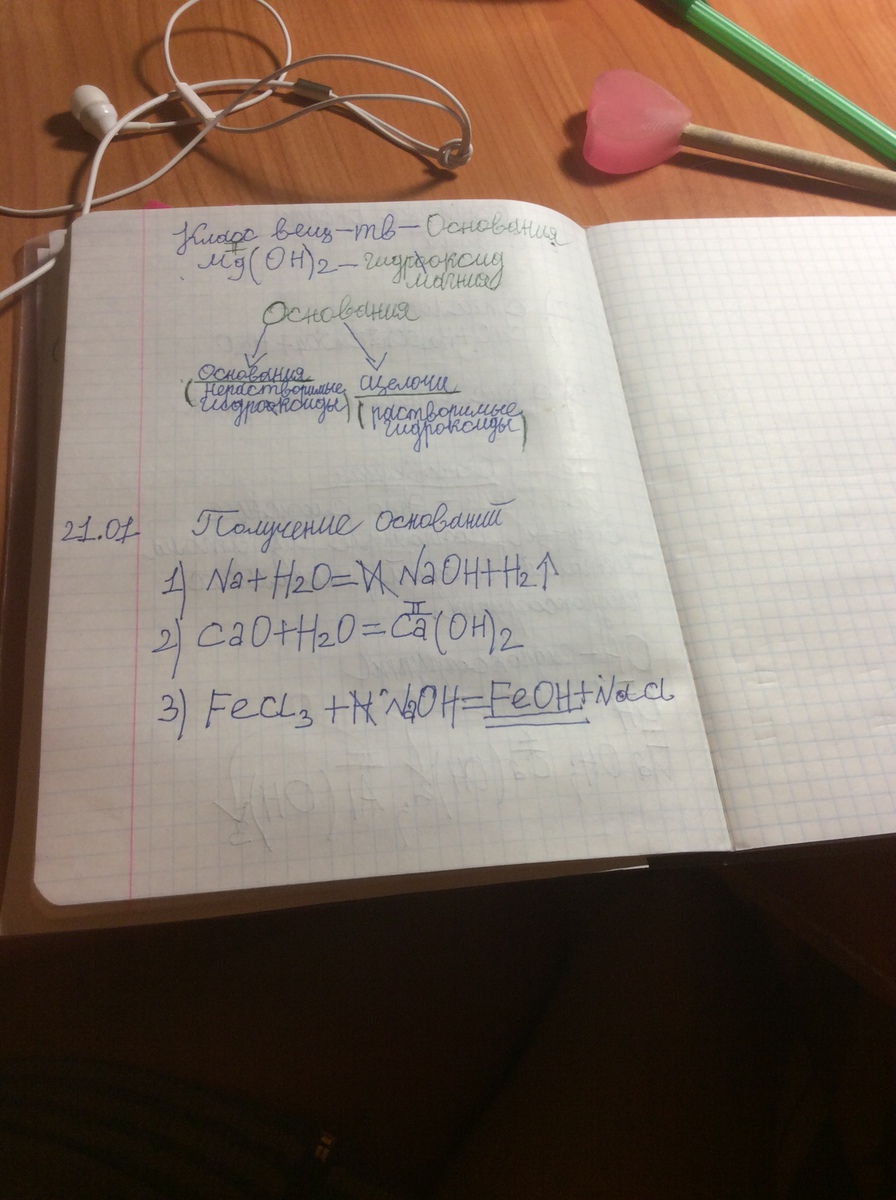 Класс вещ-тв - Основания
II
Mg(OH)2 - гидроксид
магния
Основания
Основания
(нерастворимые
гидроксиды)
щелочи
(растворимые
гидроксиды)
21.01 Получение оснований
1) Na+H2O= NaOH+H2↑
II
2) CaO+H2O=Ca(OH)2
3) FeCl3 + NaOH=FeOH+NaCl